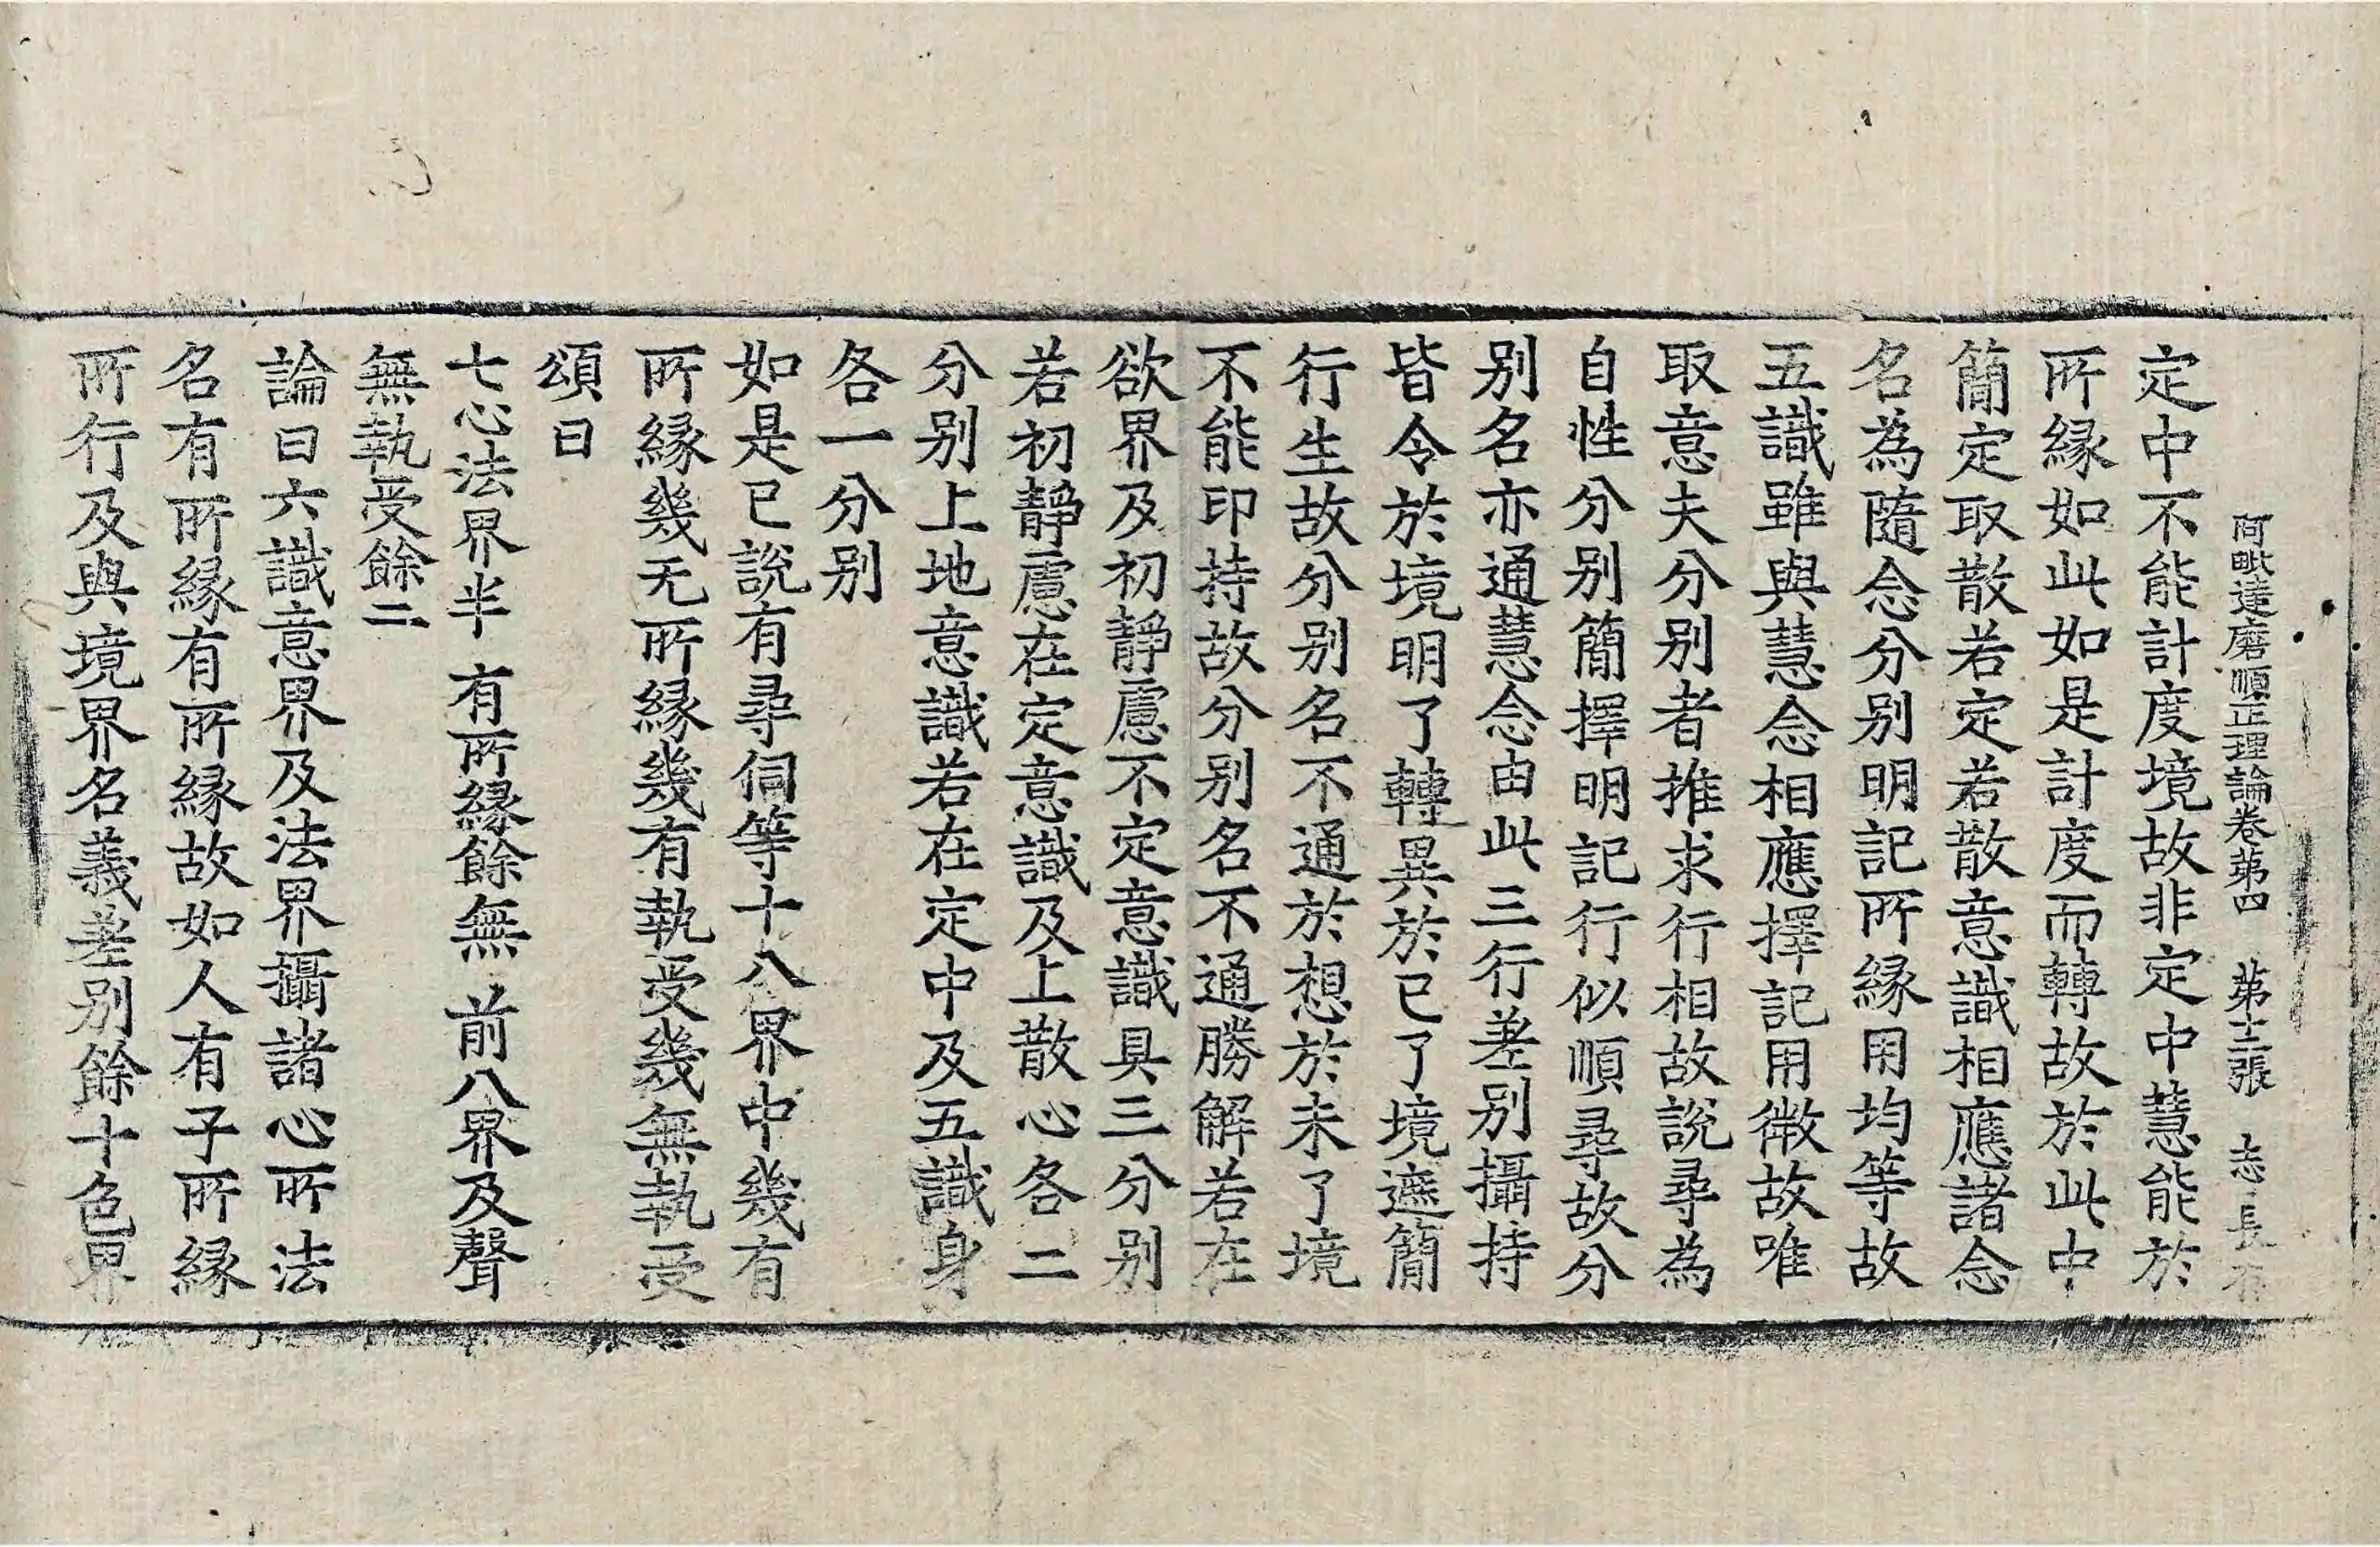 阿毗達磨順正理論卷第四 第十二張 志
定中不能計度境故非定中慧能於
所緣如此如是計度而轉故於此中
簡定取散若定若散意識相應諸念
名為隨念分别明記所緣用均等故
五識雖與慧念相應擇記用微故唯
取意夫分别者推求行相故說尋為
自性分别簡擇明記行似順尋故分
别名亦通慧念由此三行差别攝持
皆令於境明了轉異於已了境遮簡
行生故分别名不通於想於未了境
不能印持故分别名不通勝解若在
欲界及初靜慮不定意識具三分别
若初靜慮在定意識及上散心各二
分别上地意識若在定中及五識身
各一分别
如是已說有尋伺等十八界中幾有
所緣幾无所緣幾有執受幾無執受
頌曰
七心法界半 有所緣餘無 前八界及聲
無執受餘二
論曰六識意界及法界攝諸心所法
名有所緣有所緣故如人有子所緣
所行及與境界名義差别餘十色界